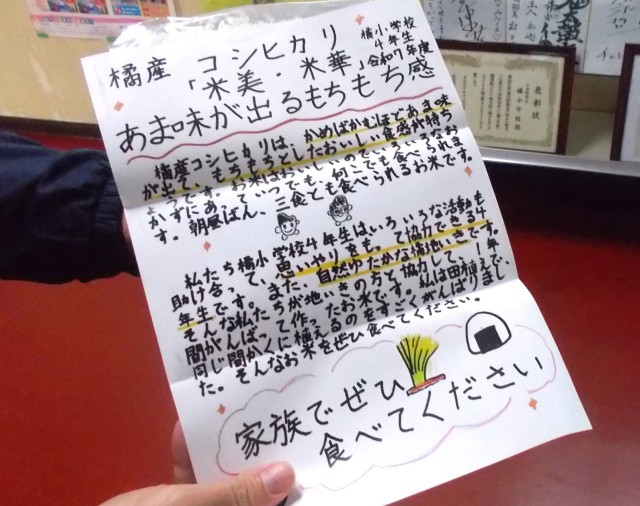 橘産 コシヒカリ
橘小学校
4年生
令和7年度
「米美・米華」
あま味が出るもちもち感
橘産コシヒカリは、かめばかむほどあま味
が出て、もちもちとしたおいしい食感が特ちょ
うです。お米はおいしいので、
かずにあっていつでも、何にでも食べられます。
す。朝昼ばん、三食とも食べられるお米です。
私たち橘小学校4年生はいろいろな活動も
助け合って、思いやりをもって協力できる4
年生です。また、自然ゆたかな橘地いきです。
そんな私たちが地いきの方と協力して、1年
間がんばって作ったお米です。私は田植えで、
同じ間かくに植えるのをすごくがんばりまし
た。そんなお米をぜひ食べてください。
家族でぜひ
食べてください
表彰状
橘小学校殿